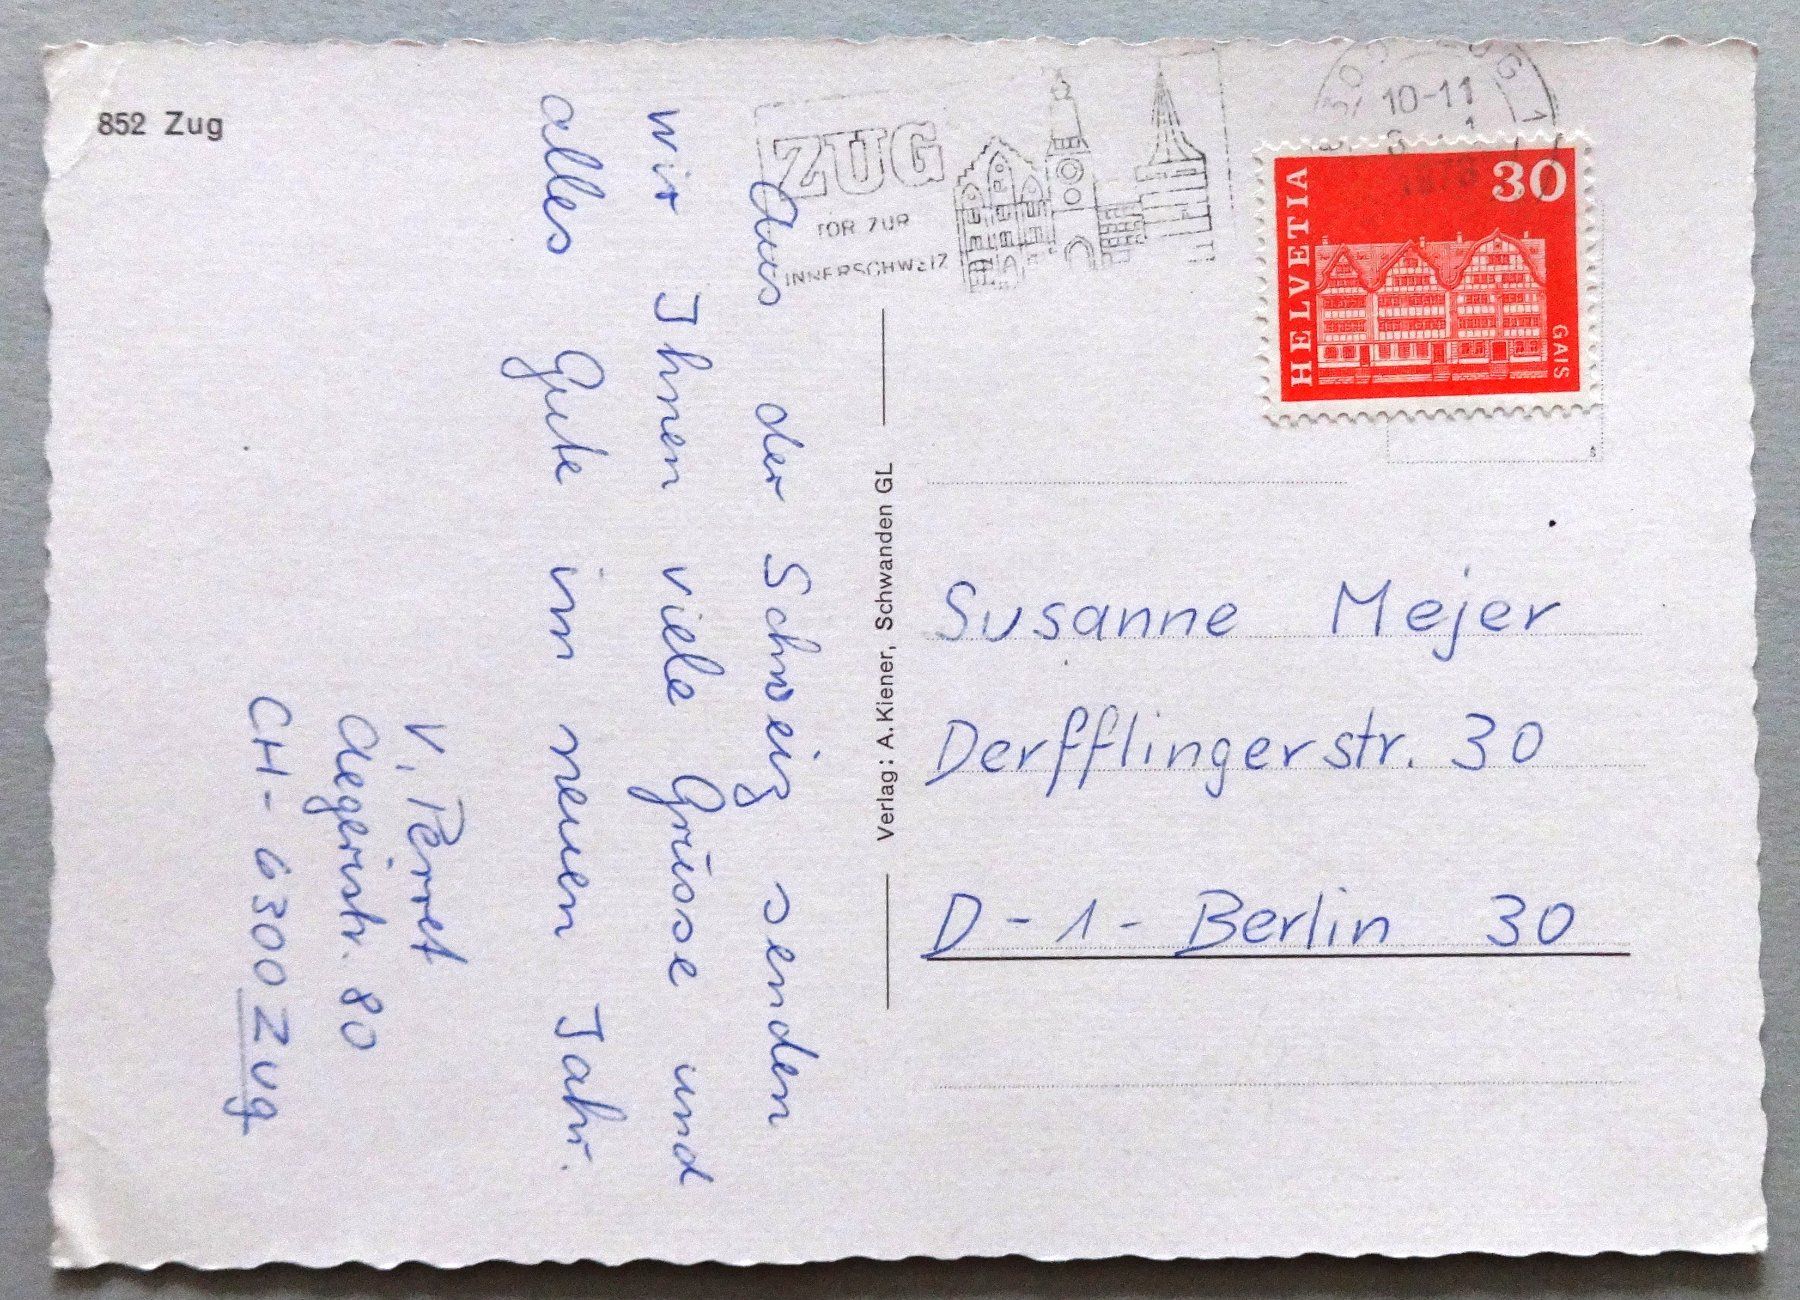 852 Zug
Aus der Schweiz senden
wir Ihnen viele Grüsse und
alles Gute im neuen Jahr.
V. Perret
Aegeristr. 80
CH-6300 Zug
Verlag: A. Kiener, Schwanden GL
ZUG
TOR ZUR
INNERSCHWEIZ
10-11
HELVETIA
30
GAIS
Susanne Mejer
Derfflingerstr. 30
D-1-Berlin 30